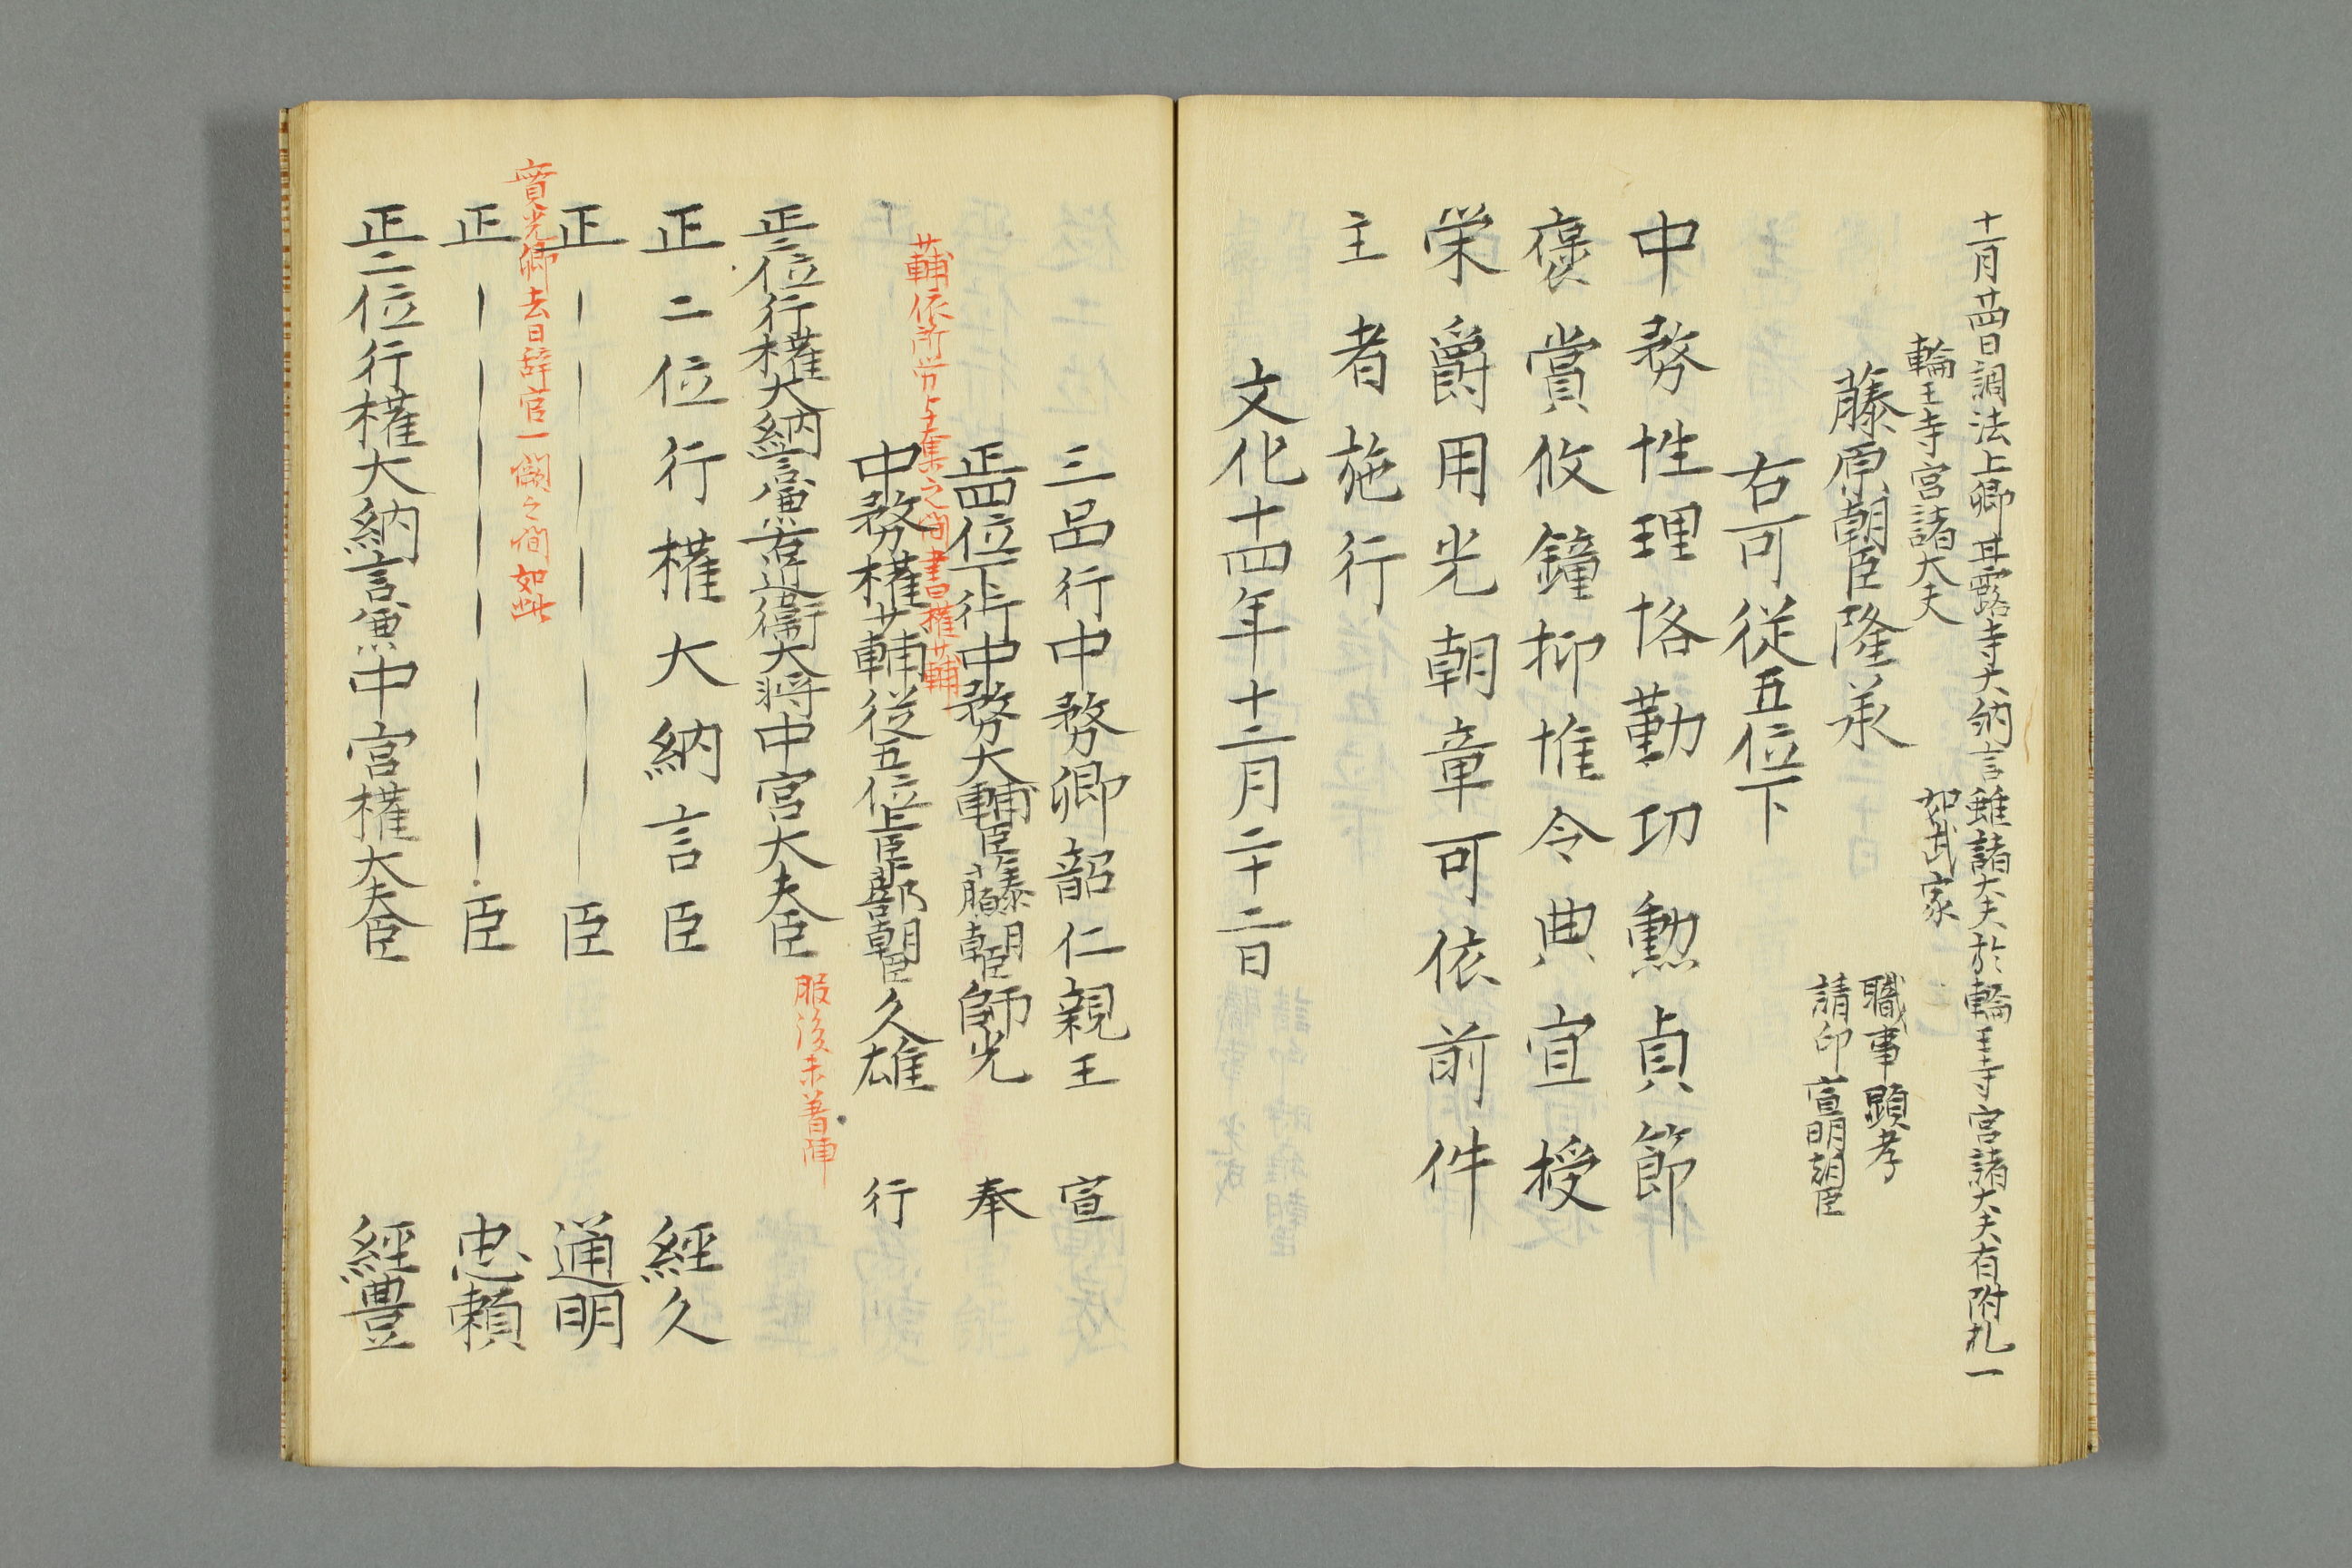 十一月廿四日調法上卿甘露寺大納言雖諸大夫於輪王寺宮諸大夫有附札一
如武家
輪王寺宮諸大夫
職事顕孝
請印宣明朝臣
藤原朝臣隆承
右可従五位下
中務性理恪勤功勲貞節
褒賞攸鐘抑惟令典宜授
栄爵用光朝章可依前件
主者施行
文化十四年十二月二十二日
三品行中務卿韶仁親王 宣
正四位下行中務大輔臣藤原朝臣師光 奉
少輔依所労上表之間書権少輔
中務権少輔従五位上臣卜部朝臣久雄 行
正二位行権大納言兼右近衛大将中宮大夫臣
服後未着陣
正二位行権大納言臣 経久
正 臣 通明
資光卿去日辞官一闕之間如此
正 臣 忠頼
正二位行権大納言兼中宮権大夫臣 経豊